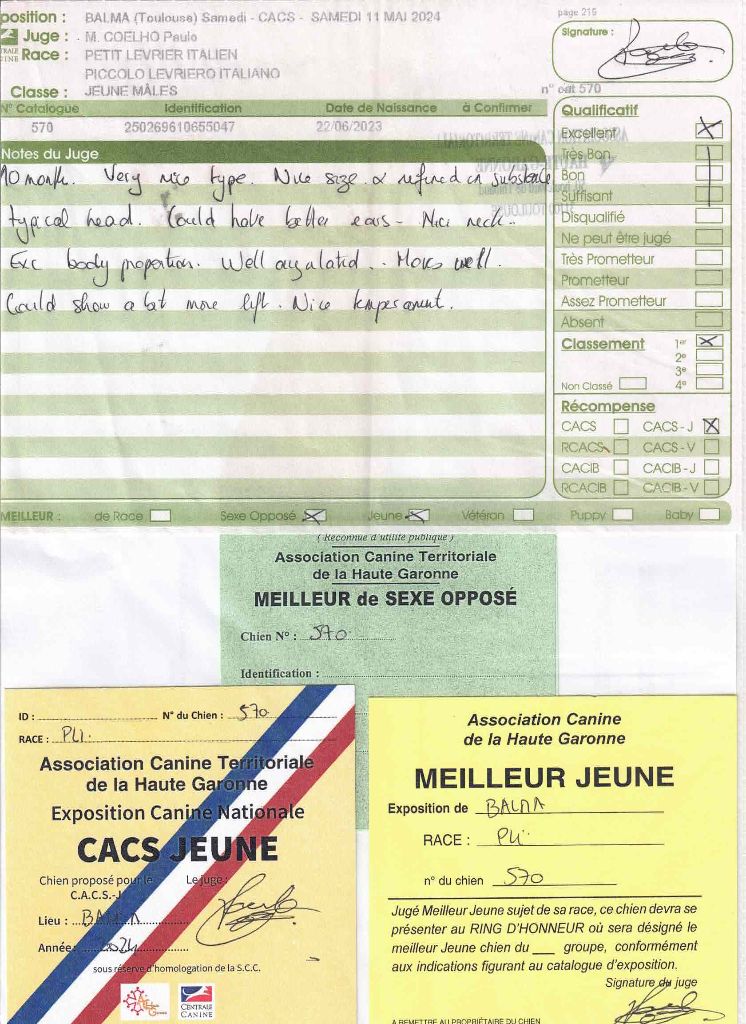 page 215
position : BALMA (Toulouse) Samedi - CACS - SAMEDI 11 MAI 2024
Juge : M. COELHO Paulo
Race : PETIT LEVRIER ITALIEN
PICCOLO LEVRIERO ITALIANO
Classe : JEUNE MÂLES
Signature :
n° cat 570
N° Catalogue Identification Date de Naissance à Confirmer
570 250269610655047 22/06/2023
Notes du Juge
10 month. Very nice type. Nice size. & refined in substance
typical head. Could have better ears - Nice neck.
Exc body proportion. Well angulated. Moves well.
Could show a bit more lift. Nice temperament.
Qualificatif
Excellent
Très Bon
Bon
Suffisant
Disqualifié
Ne peut être jugé
Très Prometteur
Prometteur
Assez Prometteur
Absent
Classement 1er
2e
3e
Non Classé 4e
Récompense
CACS CACS - J
RCACS CACS - V
CACIB CACIB - J
RCACIB CACIB - V
MEILLEUR : de Race Sexe Opposé Jeune Vétéran Puppy Baby
( Reconnue d'utilité publique )
Association Canine Territoriale
de la Haute Garonne
MEILLEUR de SEXE OPPOSÉ
Chien N° : 570
Identification :
ID : N° du Chien : 570
RACE : PLI.
Association Canine Territoriale
de la Haute Garonne
Exposition Canine Nationale
CACS JEUNE
Chien proposé pour le Le juge :
C.A.C.S.-J
Lieu : BALMA
Année : 2024
sous réserve d'homologation de la S.C.C.
CENTRALE
CANINE
Association Canine
de la Haute Garonne
MEILLEUR JEUNE
Exposition de BALMA
RACE : PLI
n° du chien 570
Jugé Meilleur Jeune sujet de sa race, ce chien devra se
présenter au RING D'HONNEUR où sera désigné le
meilleur Jeune chien du ___ groupe, conformément
aux indications figurant au catalogue d'exposition.
Signature du juge
A REMETTRE AU PROPRIÉTAIRE DU CHIEN